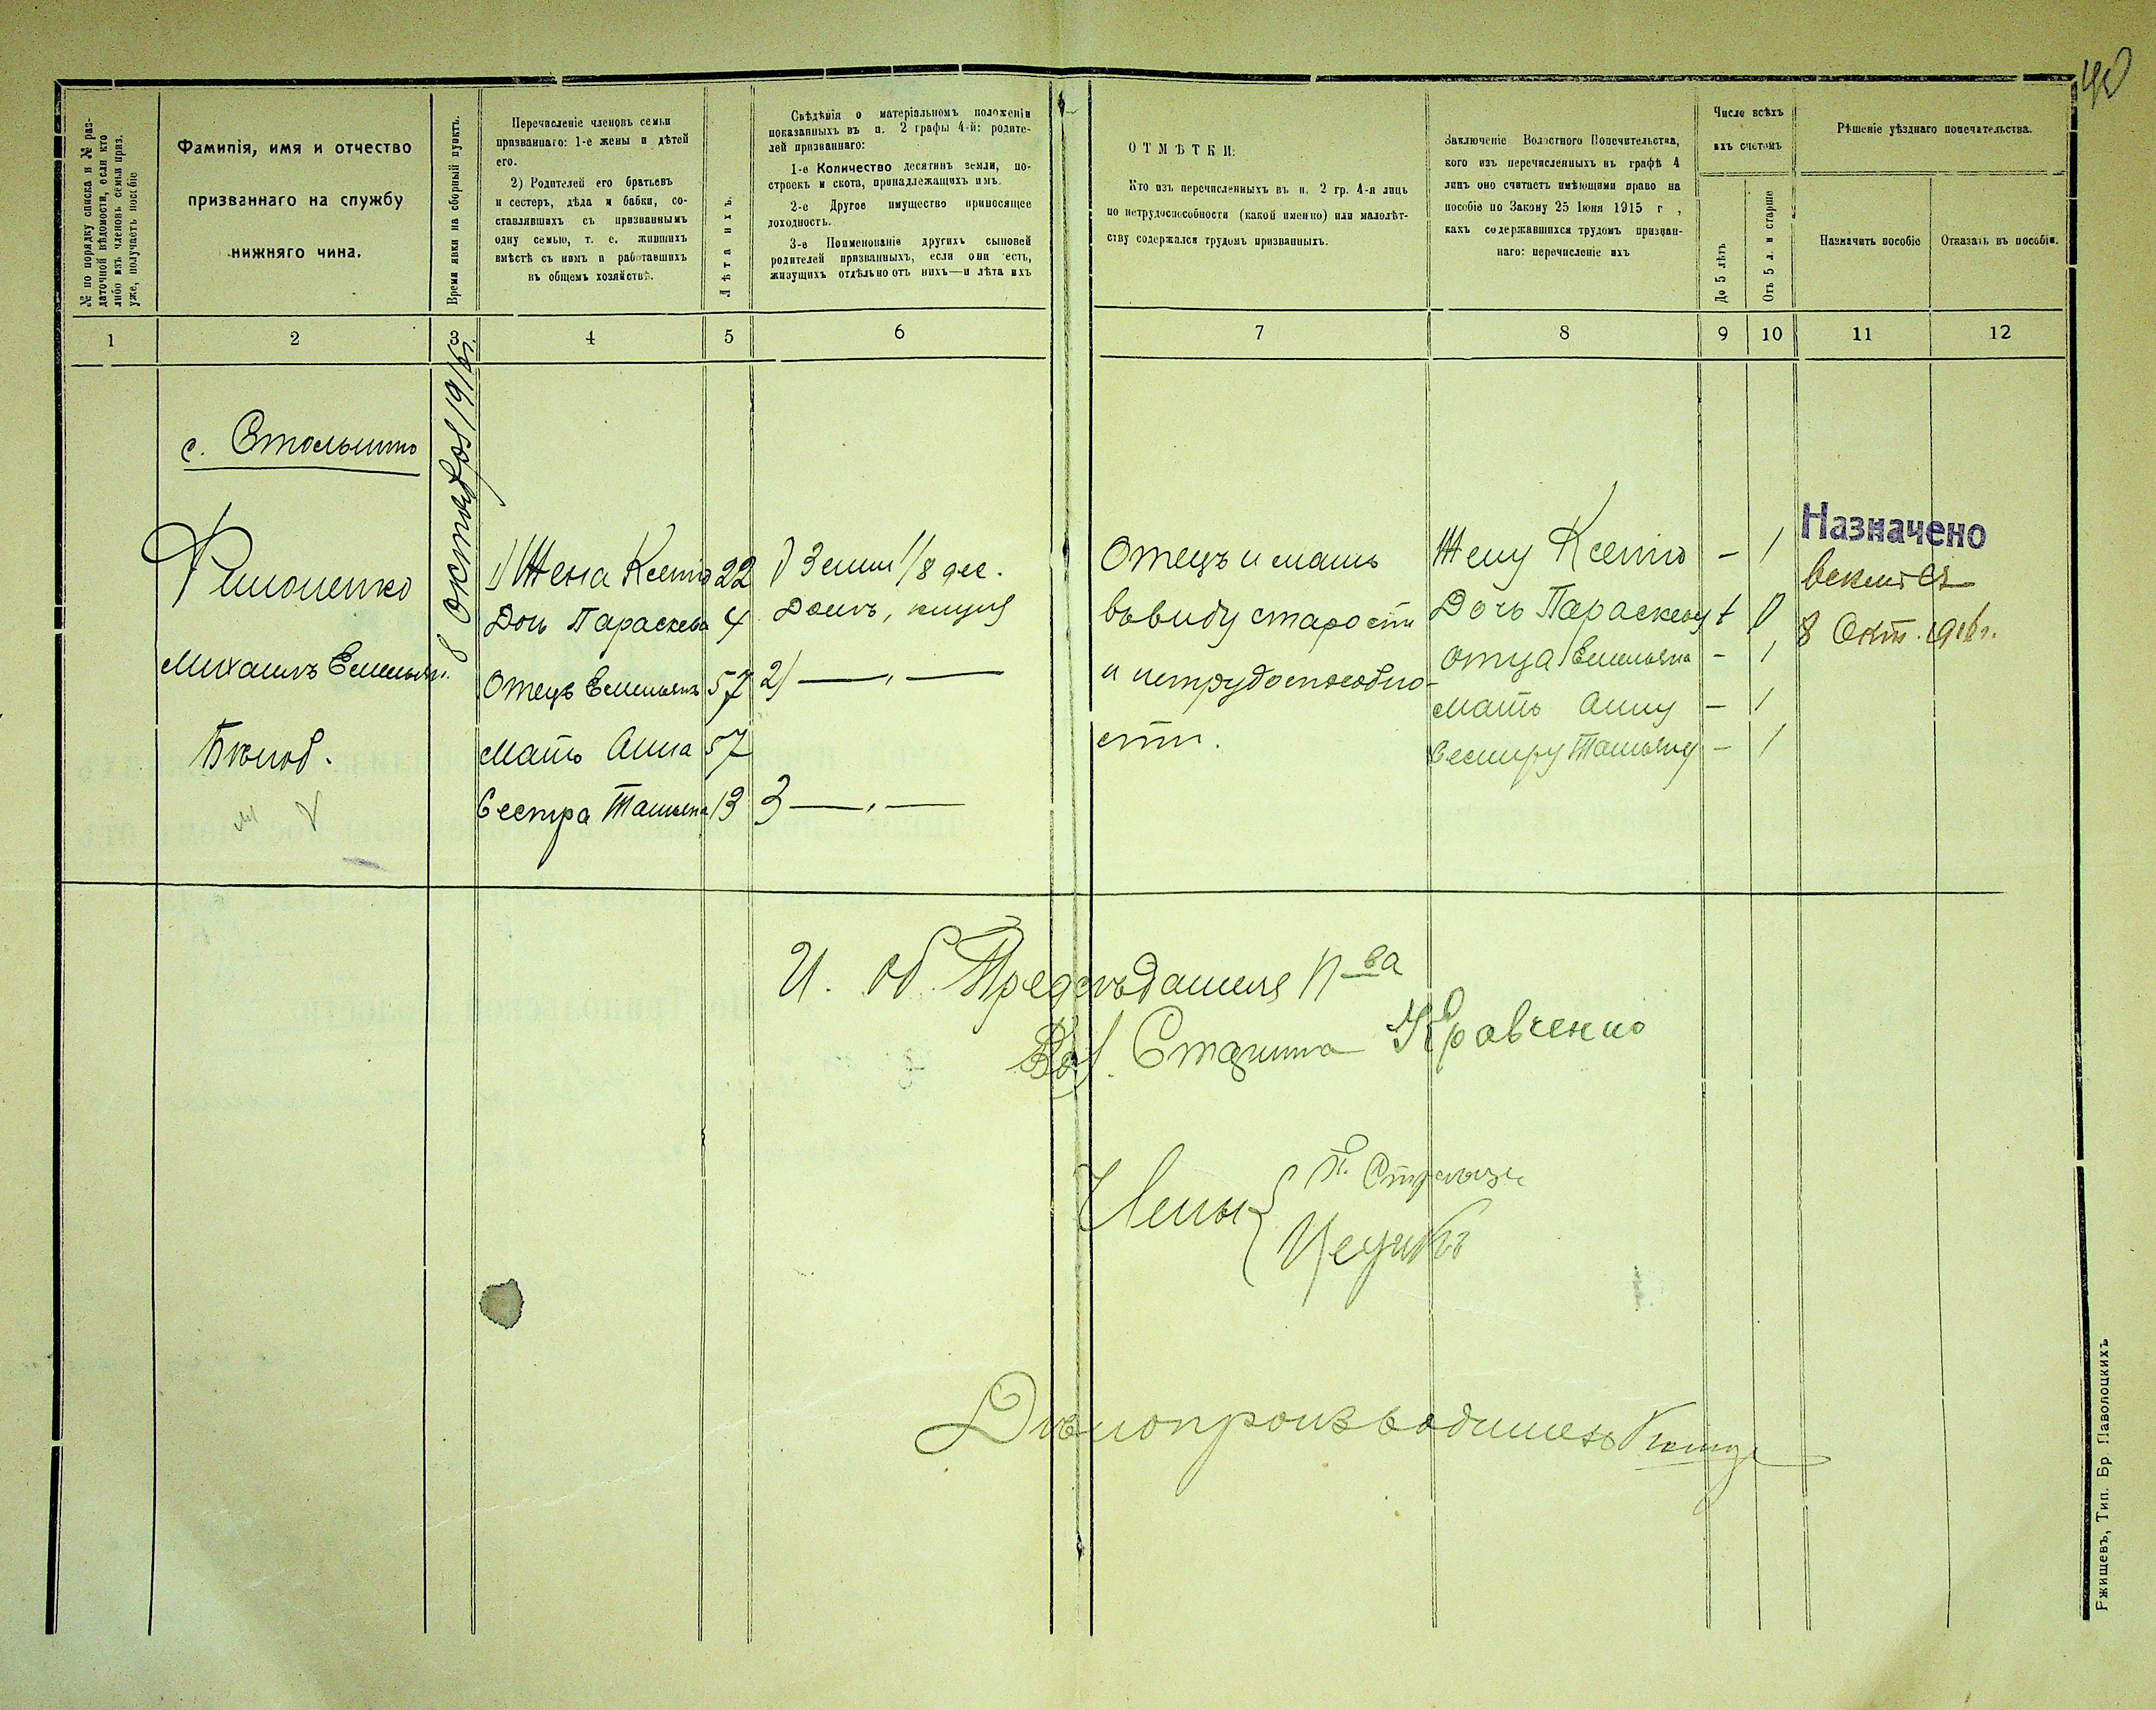 40
№ по порядку списка и № раз-
даточной вѣдомости, если кто
либо изъ членовъ семьи приз.
уже, получаетъ пособіе
Фамилія, имя и отчество
призваннаго на службу
нижняго чина.
Время явки на сборный пунктъ.
Перечисленіе членовъ семьи
призваннаго: 1-е жены и дѣтей
его.
2) Родителей его братьевъ
и сестеръ, дѣда и бабки, со-
ставлявшихъ съ призваннымъ
одну семью, т. е. жившихъ
вмѣстѣ съ нимъ и работавшихъ
въ общемъ хозяйствѣ.
Лѣта ихъ.
Свѣдѣнія о матеріальномъ положеніи
показанныхъ въ п. 2 графы 4-й: родите-
лей призваннаго:
1-е Количество десятинъ земли, по-
строекъ и скота, принадлежащихъ имъ.
2-е Другое имущество приносящее
доходность.
3-е Поименованіе другихъ сыновей
родителей призванныхъ, если они есть,
живущихъ отдѣльно отъ нихъ—и лѣта ихъ
ОТМѢТКИ:
Кто изъ перечисленныхъ въ п. 2 гр. 4-я лицъ
по нетрудоспособности (какой именно) или малолѣт-
ству содержался трудомъ призванныхъ.
Заключеніе Волостного Попечительства,
кого изъ перечисленныхъ въ графѣ 4
лицъ оно считаетъ имѣющими право на
пособіе по Закону 25 Іюня 1915 г.,
какъ содержавшихся трудомъ призван-
наго: перечисленіе ихъ
Число всѣхъ
ихъ счетомъ
До 5 лѣтъ
Отъ 5 л. и старше
Рѣшеніе уѣзднаго попечительства.
Назначить пособіе
Отказать въ пособіи.
1 2 3 4 5 6 7 8 9 10 11 12
8 октября 1916 г.
с.
Филоненко
Михаилъ Емельян.
1) Жена Ксенія 22
Дочь Параскева 4
Отецъ Емельянъ 57
Мать Анна 57
Сестра Татьяна 13
1) Земли 1/8 дес.
Домъ,
2) — " —
3 — " —
Отецъ и мать
въ виду старости
и нетрудоспособно-
сти.
Жену Ксенію – 1
Дочь Параскеву 1
отца Емельяна – 1
мать Анну – 1
Сестру Татьяну – 1
Назначено
8 Окт. 1916 г.
И. об. Предсѣдателя П-ва
Вол. Старшина Кравченко
Члены
Дѣлопроизводитель
Ржищевъ, Тип. Бр Паволоцкихъ